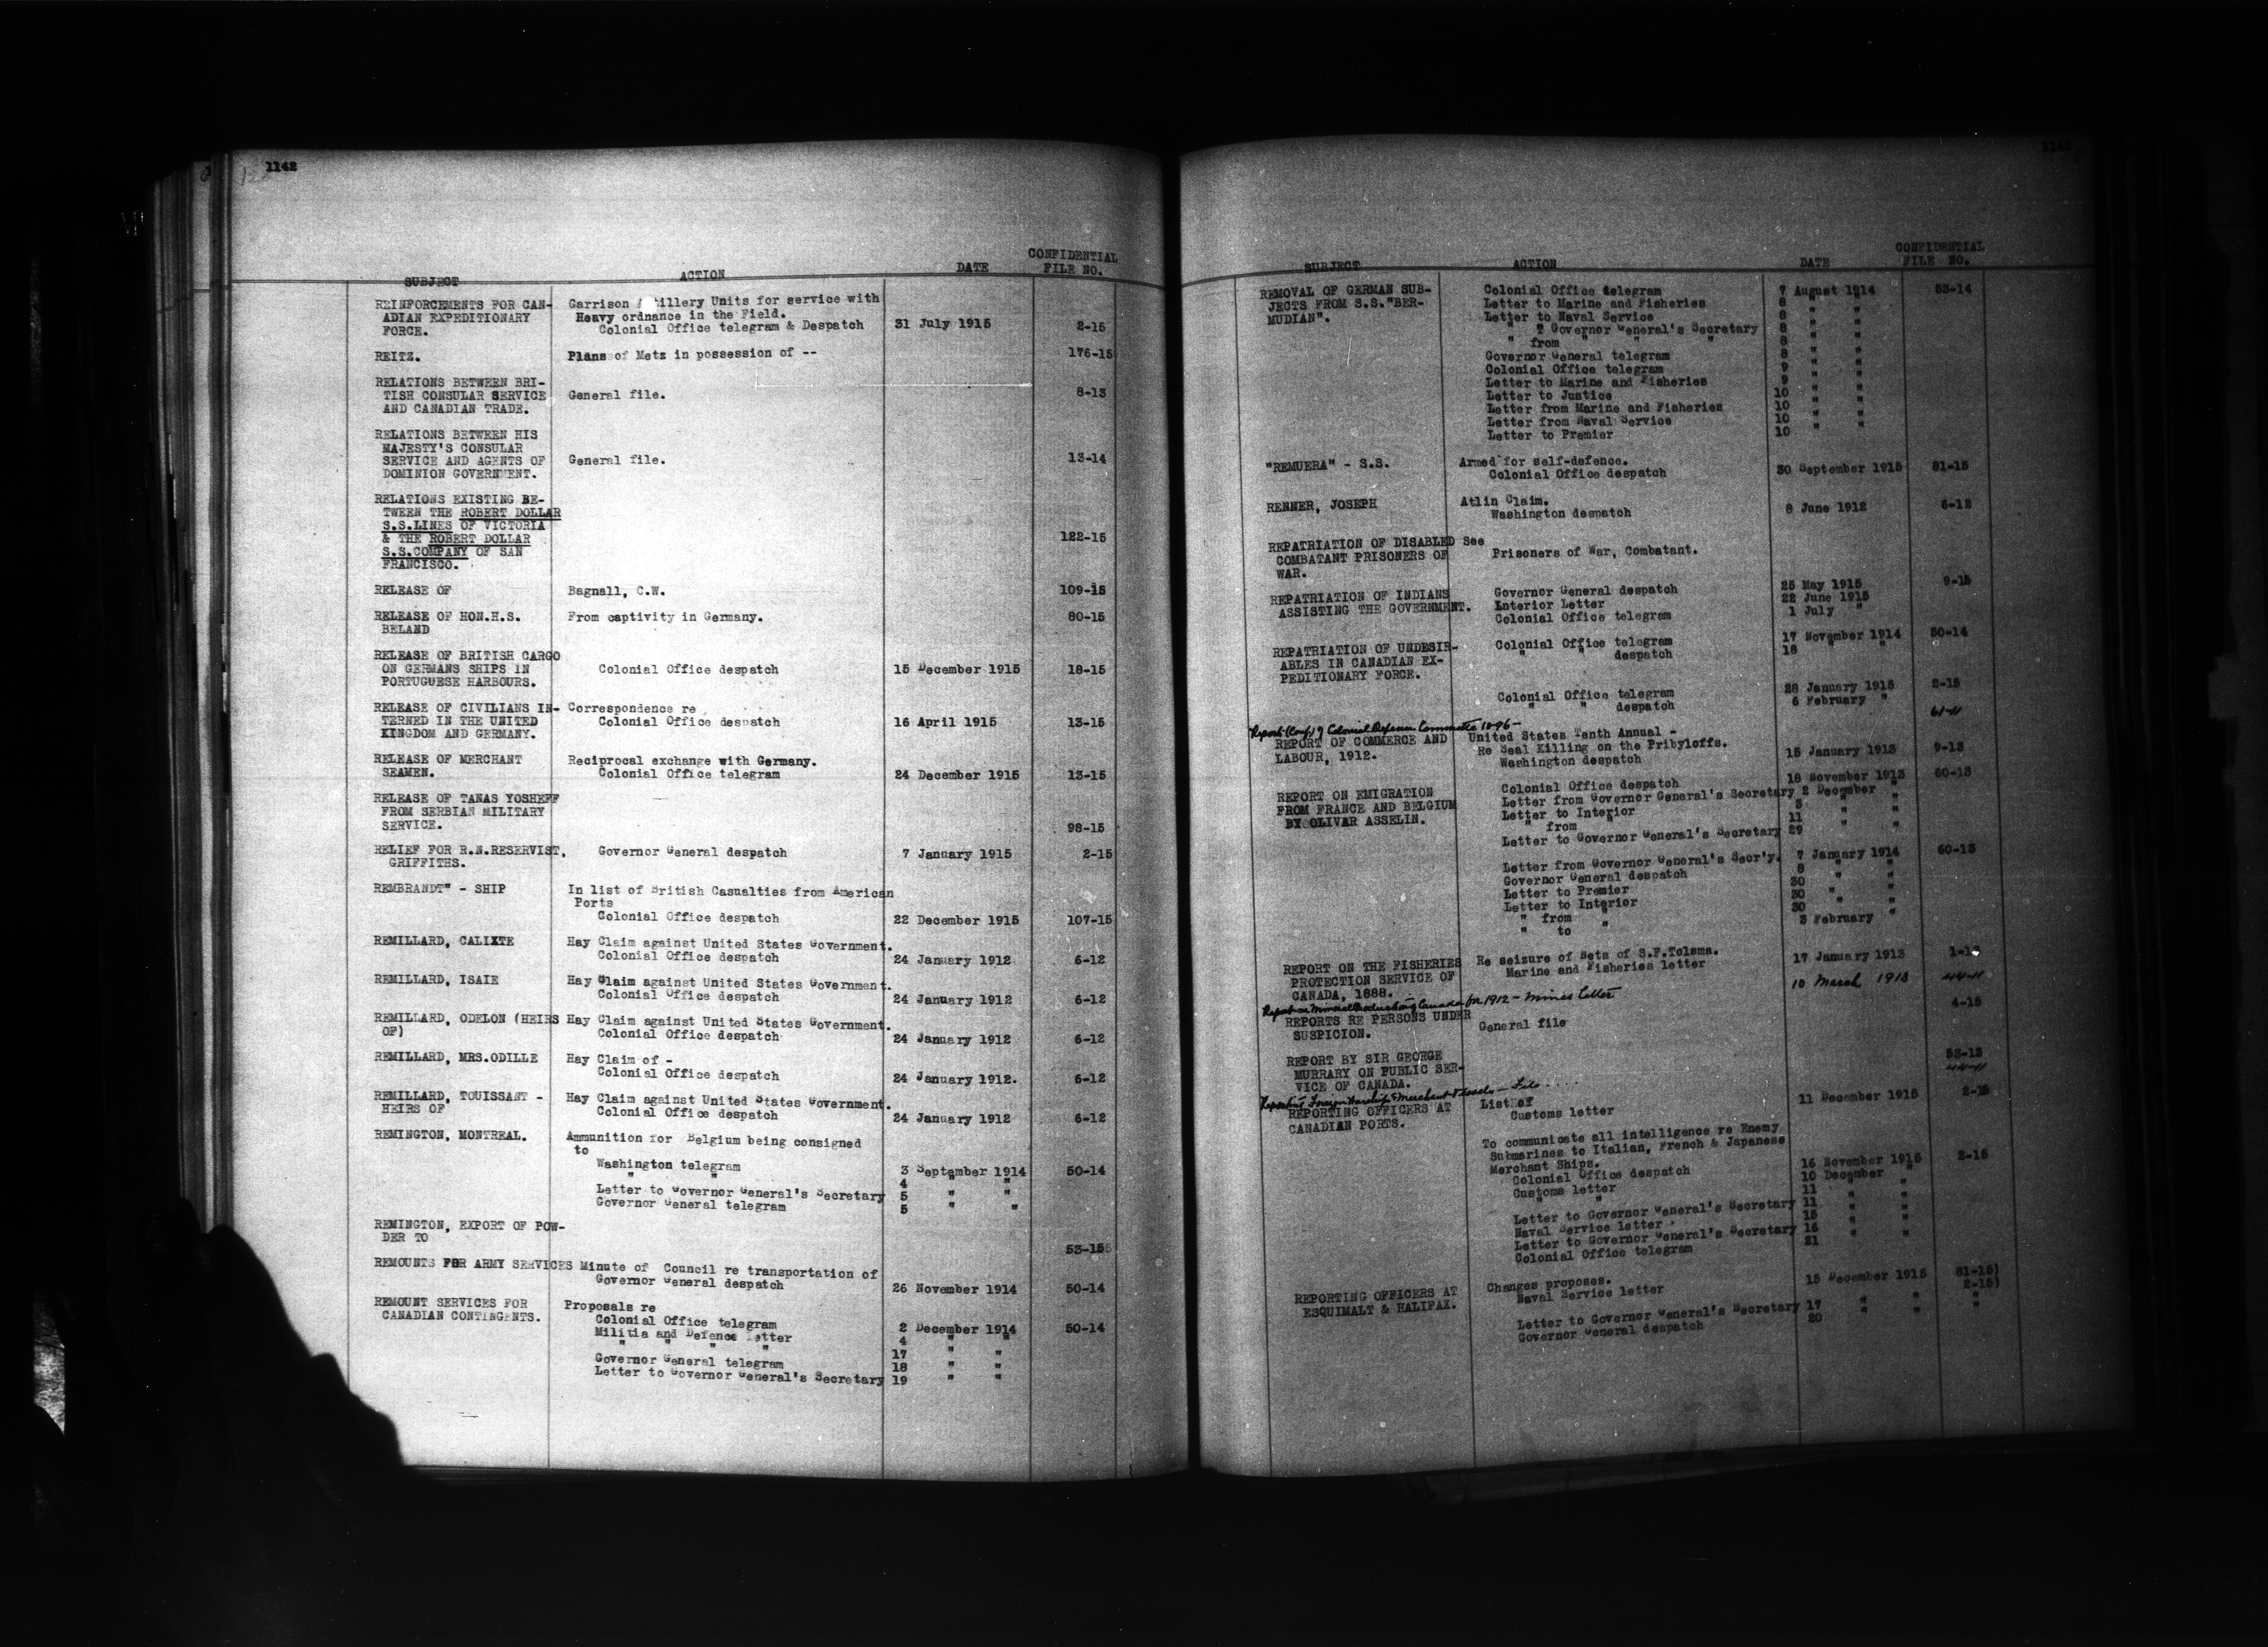 1142
SUBJECT ACTION DATE CONFIDENTIAL FILE NO.
REINFORCEMENTS FOR CAN- Garrison tillery Units for service with
ADIAN EXPEDITIONARY Heavy ordnance in the Field.
FORCE. Colonial Office telegram & Despatch 31 July 1915 2-15
REITZ. Plans of Metz in possession of -- 176-15
RELATIONS BETWEEN BRI-
TISH CONSULAR SERVICE General file. 8-13
AND CANADIAN TRADE.
RELATIONS BETWEEN HIS
MAJESTY'S CONSULAR
SERVICE AND AGENTS OF General file. 13-14
DOMINION GOVERNMENT.
RELATIONS EXISTING BE-
TWEEN THE ROBERT DOLLAR
S.S.LINES OF VICTORIA
& THE ROBERT DOLLAR 122-15
S.S.COMPANY OF SAN
FRANCISCO.
RELEASE OF Bagnall, C.W. 109-15
RELEASE OF HON.H.S. From captivity in Germany. 80-15
BELAND
RELEASE OF BRITISH CARGO
ON GERMANS SHIPS IN Colonial Office despatch 15 December 1915 18-15
PORTUGUESE HARBOURS.
RELEASE OF CIVILIANS IN- Correspondence re
TERNED IN THE UNITED Colonial Office despatch 16 April 1915 13-15
KINGDOM AND GERMANY.
RELEASE OF MERCHANT Reciprocal exchange with Germany.
SEAMEN. Colonial Office telegram 24 December 1915 13-15
RELEASE OF TANAS YOSHEFF
FROM SERBIAN MILITARY
SERVICE. 98-15
RELIEF FOR R.N.RESERVIST, Governor General despatch 7 January 1915 2-15
GRIFFITHS.
REMBRANDT" - SHIP In list of British Casualties from American
Ports
Colonial Office despatch 22 December 1915 107-15
REMILLARD, CALIXTE Hay Claim against United States Government.
Colonial Office despatch 24 January 1912 6-12
REMILLARD, ISAIE Hay Claim against United States Government.
Colonial Office despatch 24 January 1912 6-12
REMILLARD, ODELON (HEIRS Hay Claim against United States Government.
OF) Colonial Office despatch 24 January 1912 6-12
REMILLARD, MRS.ODILLE Hay Claim of -
Colonial Office despatch 24 January 1912. 6-12
REMILLARD, TOUISSANT - Hay Claim against United States Government.
HEIRS OF Colonial Office despatch 24 January 1912 6-12
REMINGTON, MONTREAL. Ammunition for Belgium being consigned
to
Washington telegram 3 September 1914 50-14
" " 4 " "
Letter to Governor General's Secretary 5 " "
Governor General telegram 5 " "
REMINGTON, EXPORT OF POW-
DER TO 53-15
REMOUNTS FOR ARMY SERVICES Minute of Council re transportation of
Governor General despatch 26 November 1914 50-14
REMOUNT SERVICES FOR Proposals re
CANADIAN CONTINGENTS. Colonial Office telegram 2 December 1914 50-14
Militia and Defence Letter 4 " "
" " " " 17 " "
Governor General telegram 18 " "
Letter to Governor General's Secretary 19 " "
SUBJECT ACTION DATE CONFIDENTIAL FILE NO.
REMOVAL OF GERMAN SUB- Colonial Office telegram 7 August 1914 53-14
JECTS FROM S.S."BER- Letter to Marine and Fisheries 8 " "
MUDIAN". Letter to Naval Service 8 " "
" " Governor General's Secretary 8 " "
" from " " " 8 " "
Governor General telegram 8 " "
Colonial Office telegram 9 " "
Letter to Marine and Fisheries 9 " "
Letter to Justice 10 " "
Letter from Marine and Fisheries 10 " "
Letter from Naval Service 10 " "
Letter to Premier 10 " "
"REMUERA" - S.S. Armed for self-defence.
Colonial Office despatch 30 September 1915 81-15
RENNER, JOSEPH Atlin Claim.
Washington despatch 8 June 1912 6-12
REPATRIATION OF DISABLED See
COMBATANT PRISONERS OF Prisoners of War, Combatant.
WAR.
REPATRIATION OF INDIANS Governor General despatch 25 May 1915 9-15
ASSISTING THE GOVERNMENT. Interior Letter 22 June 1915
Colonial Office telegram 1 July "
REPATRIATION OF UNDESIR- Colonial Office telegram 17 November 1914 50-14
ABLES IN CANADIAN EX- " " despatch 18 " "
PEDITIONARY FORCE.
Colonial Office telegram 28 January 1915 2-15
" " despatch 6 February "
Report (Conf) of Colonial Defence Committee 1896- 61-11
REPORT OF COMMERCE AND United States Tenth Annual -
LABOUR, 1912. Re Seal Killing on the Pribyloffs.
Washington despatch 15 January 1913 9-13
REPORT ON EMIGRATION Colonial Office despatch 18 November 1913 60-13
FROM FRANCE AND BELGIUM Letter from Governor General's Secretary 2 December "
BY OLIVAR ASSELIN. Letter to Interior 3 " "
" from " 11 " "
Letter to Governor General's Secretary 29 " "
Letter from Governor General's Secr'y. 7 January 1914 60-13
Governor General despatch 8 " "
Letter to Premier 30 " "
Letter to Interior 30 " "
" from " 30 " "
" to 3 February "
REPORT ON THE FISHERIES Re seizure of Nets of S.F.Tolsma.
PROTECTION SERVICE OF Marine and Fisheries letter 17 January 1913
CANADA, 1888.
Report on Mineral Production of Canada for 1912 - Mines Letter 10 March 1913 44-11
REPORTS RE PERSONS UNDER General file 4-15
SUSPICION.
REPORT BY SIR GEORGE
MURRARY ON PUBLIC SER- 53-13
VICE OF CANADA.
Reporting Foreign Warships & Merchant Vessels - File 44-11
REPORTING OFFICERS AT List of
CANADIAN PORTS. Customs letter 11 December 1915 2-15
To communicate all intelligence re Enemy
Submarines to Italian, French & Japanese
Merchant Ships.
Colonial Office despatch 16 November 1915 2-15
Customs letter 10 December "
" " 11 " "
Letter to Governor General's Secretary 11 " "
Naval Service letter 15 " "
Letter to Governor General's Secretary 16 " "
Colonial Office telegram 21 " "
REPORTING OFFICERS AT Changes proposes.
ESQUIMALT & HALIFAX. Naval Service letter 15 December 1915 81-15)
2-15)
Letter to Governor General's Secretary 17 " " "
Governor General despatch 20 " " "